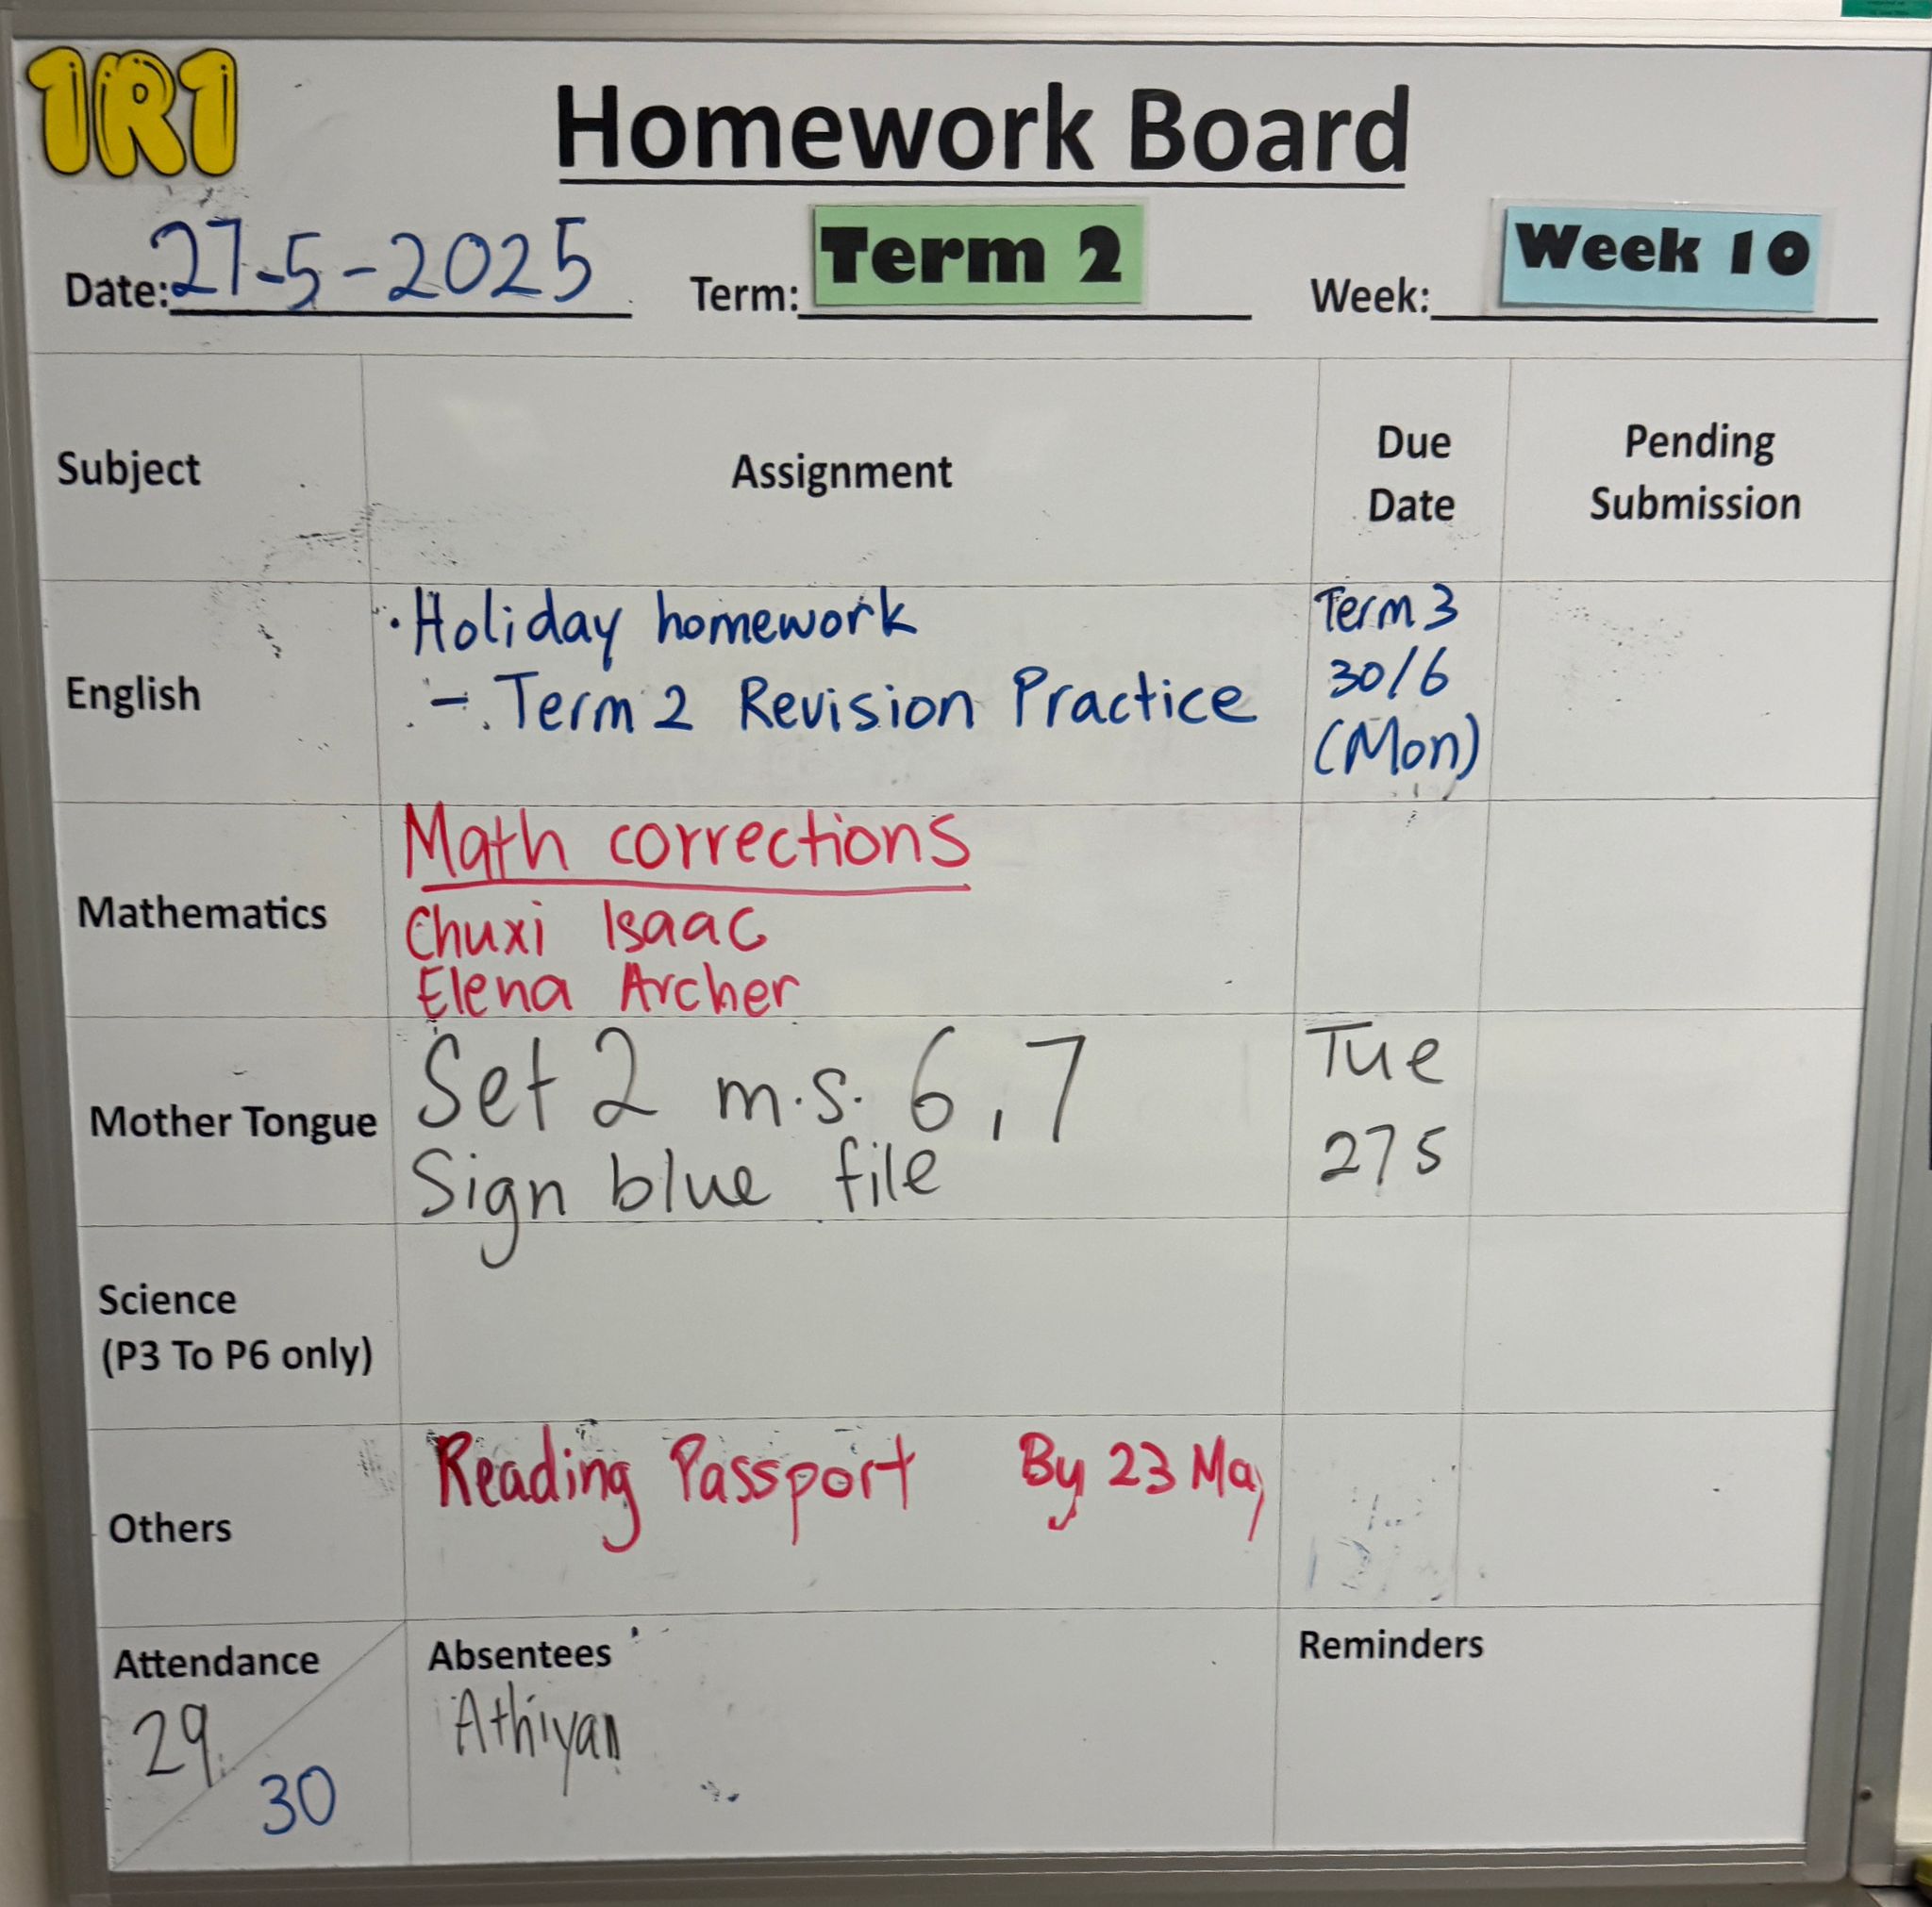 1R1
Homework Board
Date: 27-5-2025 Term: Term 2 Week: Week 10
Subject Assignment Due Date Pending Submission
English
· Holiday homework
- Term 2 Revision Practice
Term 3
30/6
(Mon)
Mathematics
Math corrections
Chuxi Isaac
Elena Archer
Mother Tongue
Set 2 m.s. 6, 7
Sign blue file
Tue
27 5
Science
(P3 To P6 only)
Others
Reading Passport By 23 May
Attendance
29
30
Absentees
Athiyan
Reminders